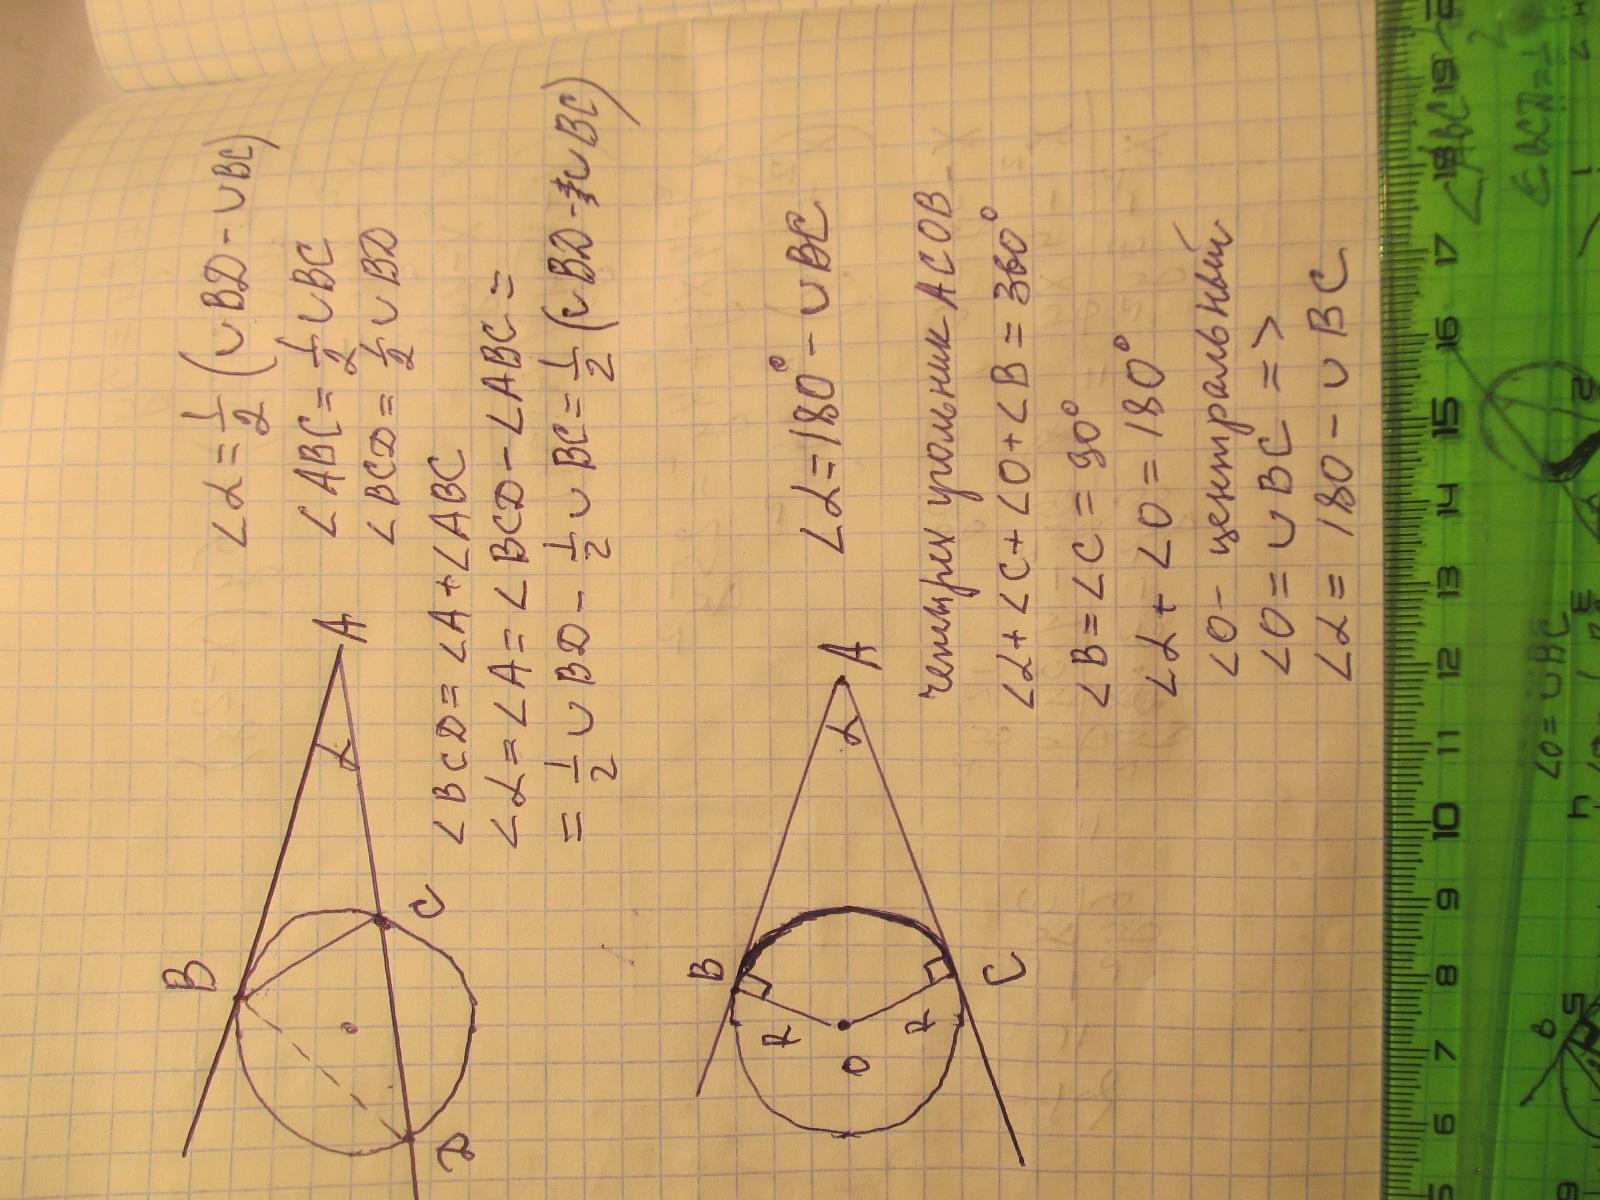 B
A
α
C
D
∠α = 1/2 (∪BD - ∪BC)
∠ABC = 1/2 ∪BC
∠BCD = 1/2 ∪BD
∠BCD = ∠A + ∠ABC
∠α = ∠A = ∠BCD - ∠ABC =
= 1/2 ∪BD - 1/2 ∪BC = 1/2 (∪BD - ∪BC)
B
A
α
R
R
O
C
∠α = 180° - ∪BC
четырехугольник ACOB
∠α + ∠C + ∠O + ∠B = 360°
∠B = ∠C = 90°
∠α + ∠O = 180°
∠O - центральный
∠O = ∪BC =>
∠α = 180 - ∪BC
5 6 7 8 9 10 11 12 13 14 15 16 17 18 19
6 5 4 3 2 1
∠O = ∪BC
∠ABC
B